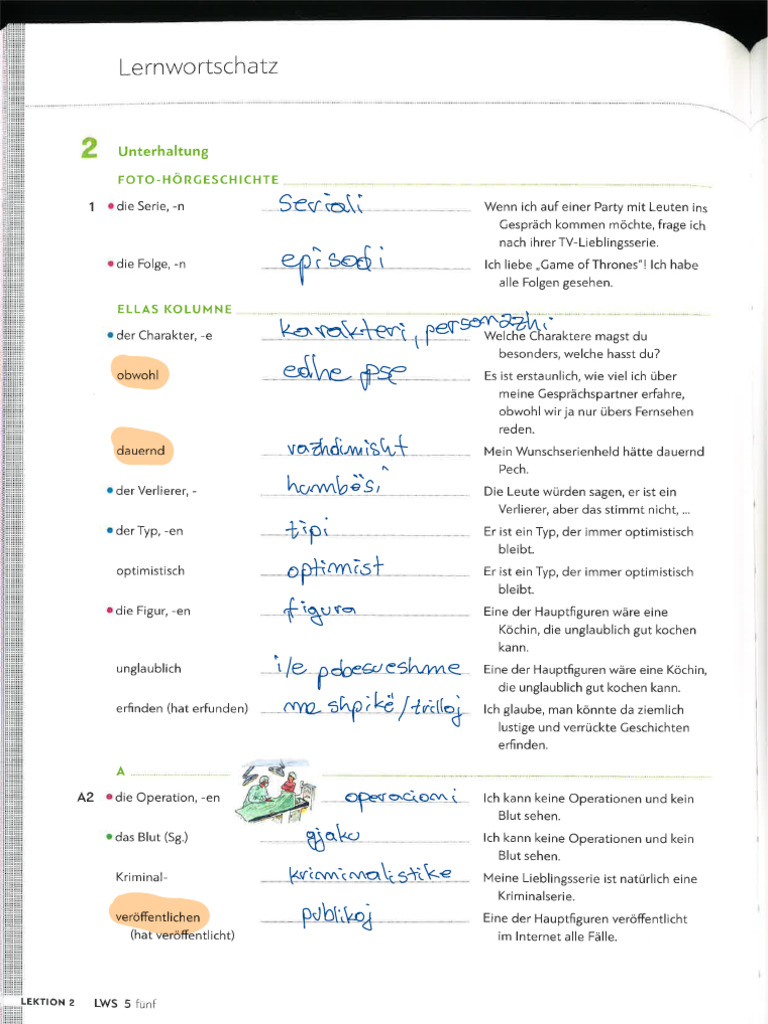 Lernwortschatz
2 Unterhaltung
FOTO-HÖRGESCHICHTE
1 die Serie, -n seriali Wenn ich auf einer Party mit Leuten ins
Gespräch kommen möchte, frage ich
nach ihrer TV-Lieblingsserie.
die Folge, -n episodi Ich liebe „Game of Thrones“! Ich habe
alle Folgen gesehen.
ELLAS KOLUMNE
der Charakter, -e karakteri, personazhi Welche Charaktere magst du
besonders, welche hasst du?
obwohl edhe pse Es ist erstaunlich, wie viel ich über
meine Gesprächspartner erfahre,
obwohl wir ja nur übers Fernsehen
reden.
dauernd vazhdimisht Mein Wunschserienheld hätte dauernd
Pech.
der Verlierer, - humbësi Die Leute würden sagen, er ist ein
Verlierer, aber das stimmt nicht, ...
der Typ, -en tipi Er ist ein Typ, der immer optimistisch
bleibt.
optimistisch optimist Er ist ein Typ, der immer optimistisch
bleibt.
die Figur, -en figura Eine der Hauptfiguren wäre eine
Köchin, die unglaublich gut kochen
kann.
unglaublich i/e pabesueshme Eine der Hauptfiguren wäre eine Köchin,
die unglaublich gut kochen kann.
erfinden (hat erfunden) me shpikë/trilloj Ich glaube, man könnte da ziemlich
lustige und verrückte Geschichten
erfinden.
A
A2 die Operation, -en operacioni Ich kann keine Operationen und kein
Blut sehen.
das Blut (Sg.) gjaku Ich kann keine Operationen und kein
Blut sehen.
Kriminal- kriminalistike Meine Lieblingsserie ist natürlich eine
Kriminalserie.
veröffentlichen publikoj Eine der Hauptfiguren veröffentlicht
(hat veröffentlicht) im Internet alle Fälle.
LEKTION 2 LWS 5 fünf